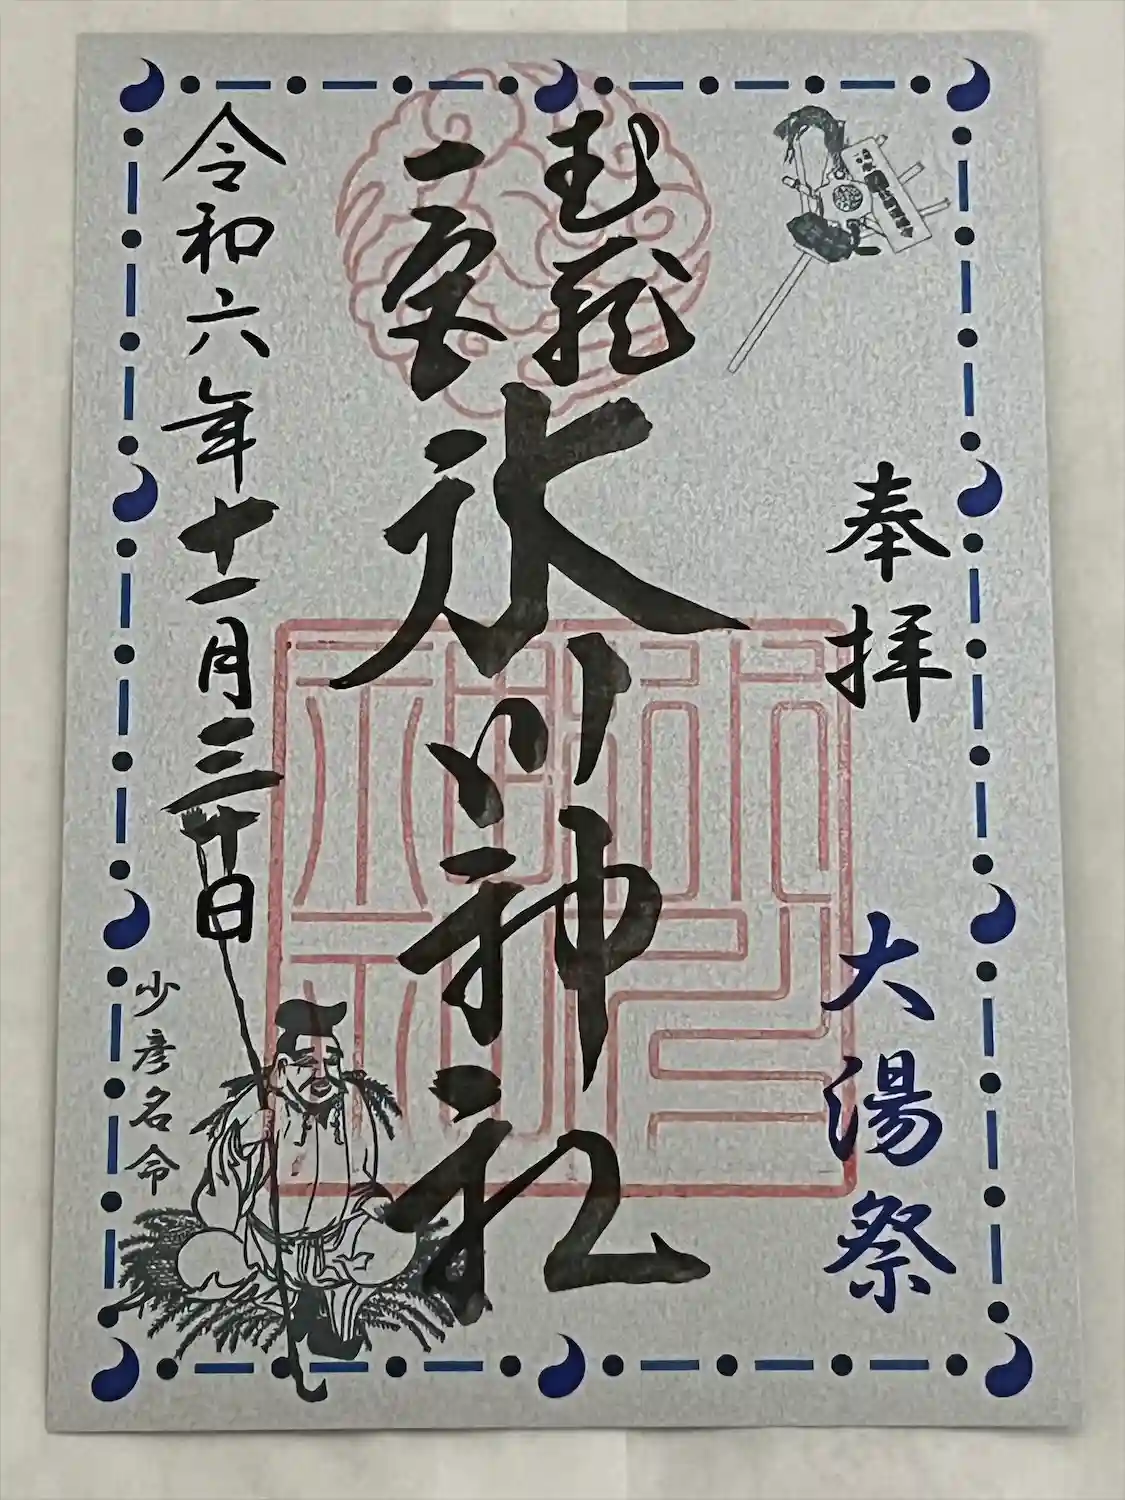 奉拝
大湯祭
武蔵
一宮
氷川神社
令和六年十一月三十日
少彦名命